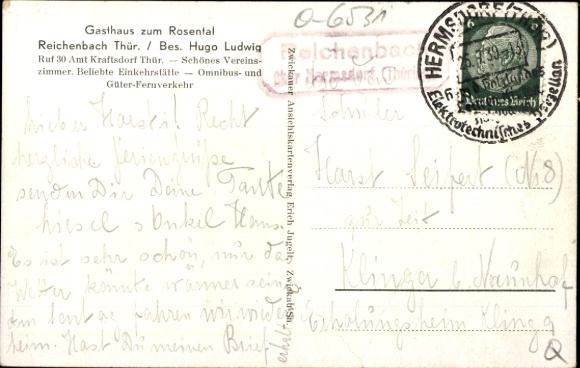 O-6531
Gasthaus zum Rosental
Reichenbach Thür. / Bes. Hugo Ludwig
Ruf 30 Amt Kraftsdorf Thür. — Schönes Vereins-
zimmer. Beliebte Einkehrstätte — Omnibus- und
Güter-Fernverkehr
Lieber Horst! Recht
herzliche Feriengrüße
senden Dir Deine Tante
Liesel & Onkel Hans.
Es ist sehr schön, nur das
Wetter könnte wärmer sein
am fahren wir wieder
heim. Hast Du meinen Brief
erhalt
Zwickauer Ansichtskartenverlag Erich Jugelt, Zwickau-Sa.
Reichenbach
über Hermsdorf (Thür)
HERMSDORF (THÜR)
Elektrotechnisches Porzellan
Deutsches Reich
Schüler
Horst Seifert (
zur Zeit
Klinga b. Naunhof
Erholungsheim Klinga
Q